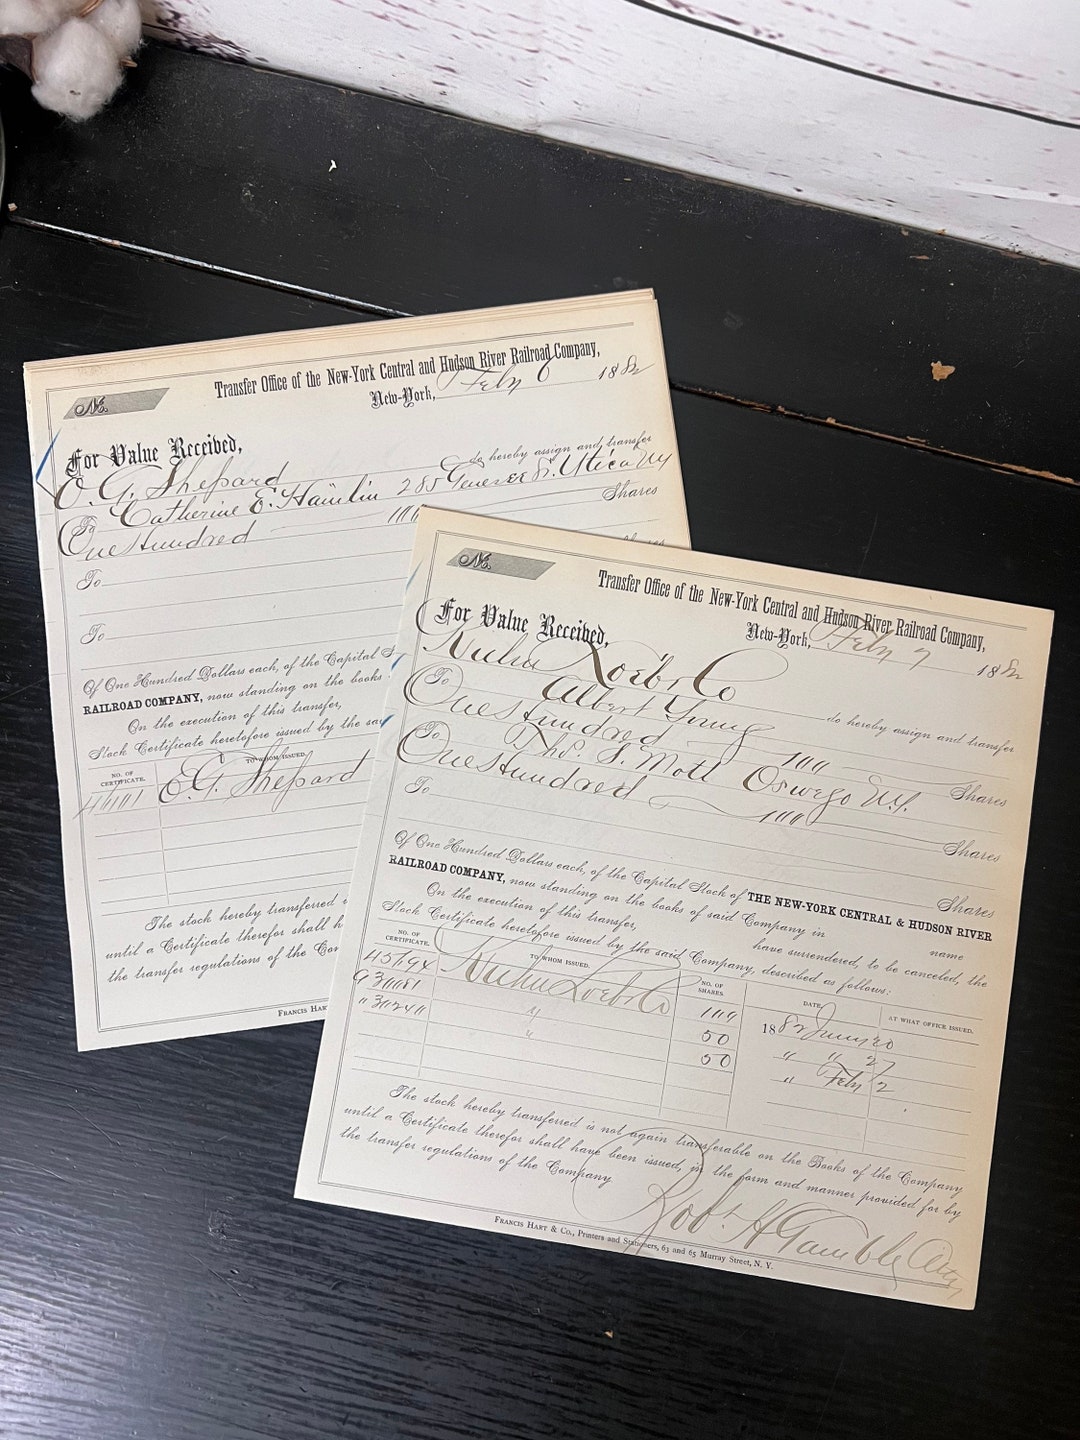 No.
Transfer Office of the New-York Central and Hudson River Railroad Company,
New-York, Feby 6 1882
For Value Received,
O. G. Shepard do hereby assign and transfer
To Catherine E. Hamlin 285 Genesee St. Utica NY
One Hundred 100 Shares
To
To
Of One Hundred Dollars each, of the Capital
RAILROAD COMPANY, now standing on the books
On the execution of this transfer,
Stock Certificate heretofore issued by the sai
NO. OF CERTIFICATE. TO WHOM ISSUED.
O. G. Shepard
The stock hereby transferred i
until a Certificate therefor shall h
the transfer regulations of the Com
FRANCIS HART
No.
Transfer Office of the New-York Central and Hudson River Railroad Company,
New-York, Feby 7 1882
For Value Received,
Kuhn Loeb & Co do hereby assign and transfer
To Albert Young
One Hundred 100 Shares
To Thos. S. Mott Oswego N.Y.
One Hundred 100 Shares
To
Shares
Of One Hundred Dollars each, of the Capital Stock of THE NEW-YORK CENTRAL & HUDSON RIVER
RAILROAD COMPANY, now standing on the books of said Company in name
On the execution of this transfer, have surrendered, to be canceled, the
Stock Certificate heretofore issued by the said Company, described as follows:
NO. OF CERTIFICATE. TO WHOM ISSUED. NO. OF SHARES DATE AT WHAT OFFICE ISSUED.
45194 Kuhn Loeb & Co 100 1882 Jany 20
" 50 " " 27
" 50 " Feby 2
The stock hereby transferred is not again transferable on the Books of the Company
until a Certificate therefor shall have been issued, in the form and manner provided for by
the transfer regulations of the Company
Robt H Gamble Atty
FRANCIS HART & CO., Printers and Stationers, 63 and 65 Murray Street, N. Y.